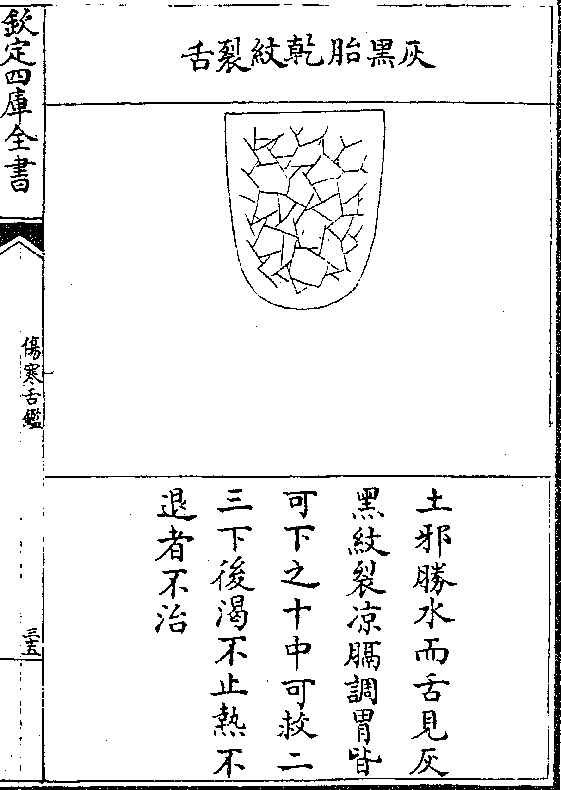 灰黑胎乾紋裂舌
土邪勝水而舌見灰
黑紋裂凉膈調胃皆
可下之十中可救二
三下後渴不止熱不
退者不治
欽定四庫全書
傷寒舌鑑
三五